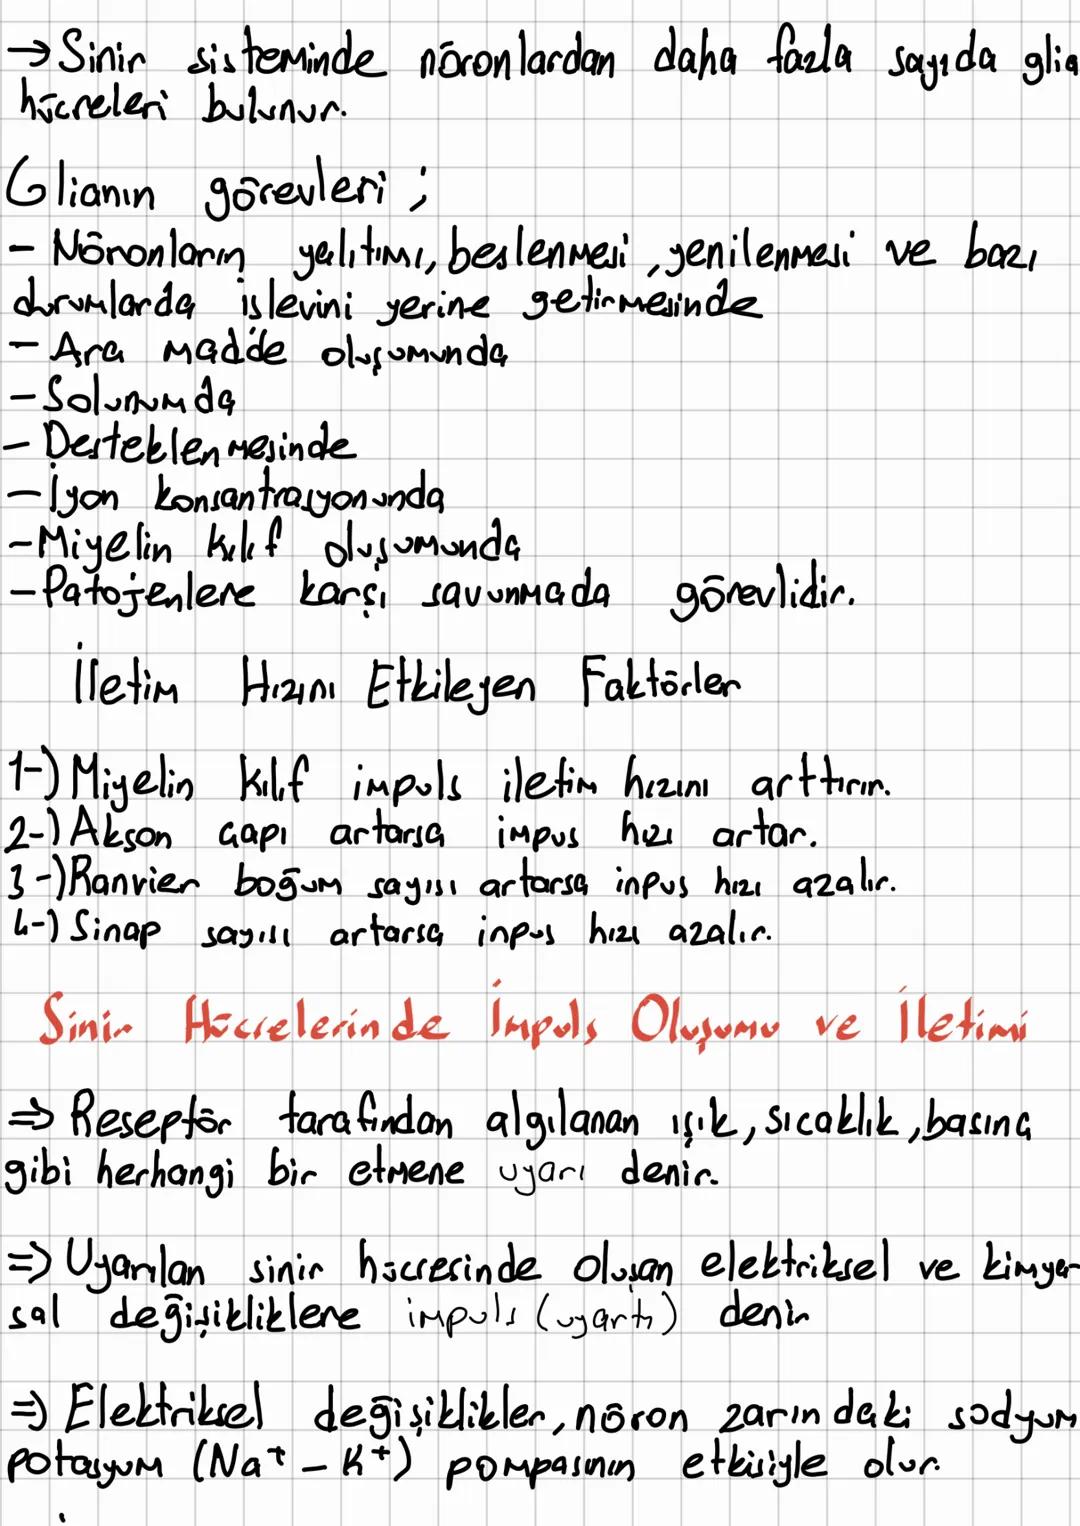 → Sinir sisteminde nöronlardan daha fazla sayıda glia
hücreleri bulunur.
Glianın görevleri ;
- Nöronların yalıtımı, beslenmesi, yenilenmesi ve bazı
durumlarda işlevini yerine getirmesinde
- Ara madde oluşumunda
- Solunumda
- Desteklenmesinde
- İyon konsantrasyonunda
- Miyelin kılıf oluşumunda
- Patojenlere karşı savunmada görevlidir.
İletim Hızını Etkileyen Faktörler
1-) Miyelin kılıf impuls iletim hızını arttırır.
2-) Akson çapı artarsa impus hızı artar.
3-) Ranvier boğum sayısı artarsa inpus hızı azalır.
4-) Sinap sayısı artarsa inpus hızı azalır.
Sinir Hücrelerinde İmpuls Oluşumu ve İletimi
⇒ Reseptör tarafından algılanan ışık, sıcaklık, basınç
gibi herhangi bir etmene uyarı denir.
⇒ Uyarılan sinir hücresinde oluşan elektriksel ve kimyer
sal değişikliklere impuls (uyartı) denir
⇒ Elektriksel değişiklikler, nöron zarındaki sodyum
potasyum (Na⁺ - K⁺) pompasının etkisiyle olur.